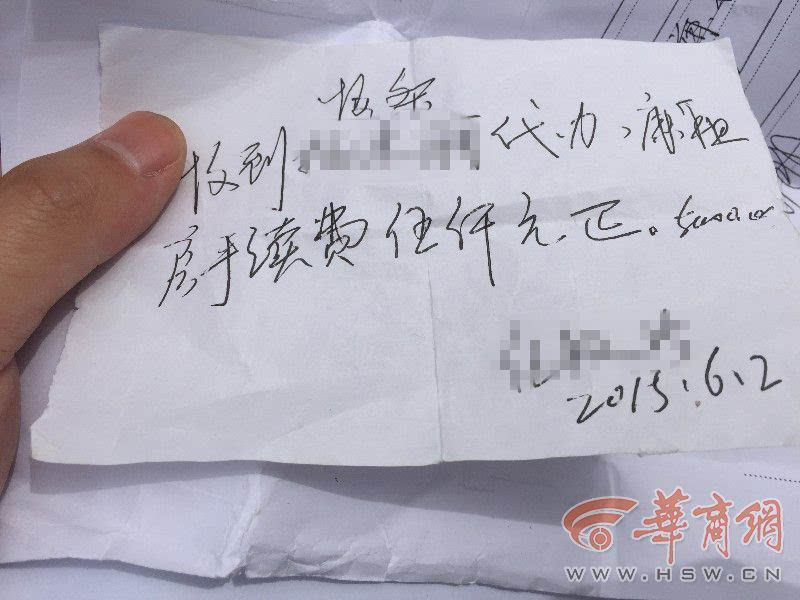 收到 代办、廉租
房手续费伍仟元正。5000.00
2015.6.2
華商網
WWW.HSW.CN